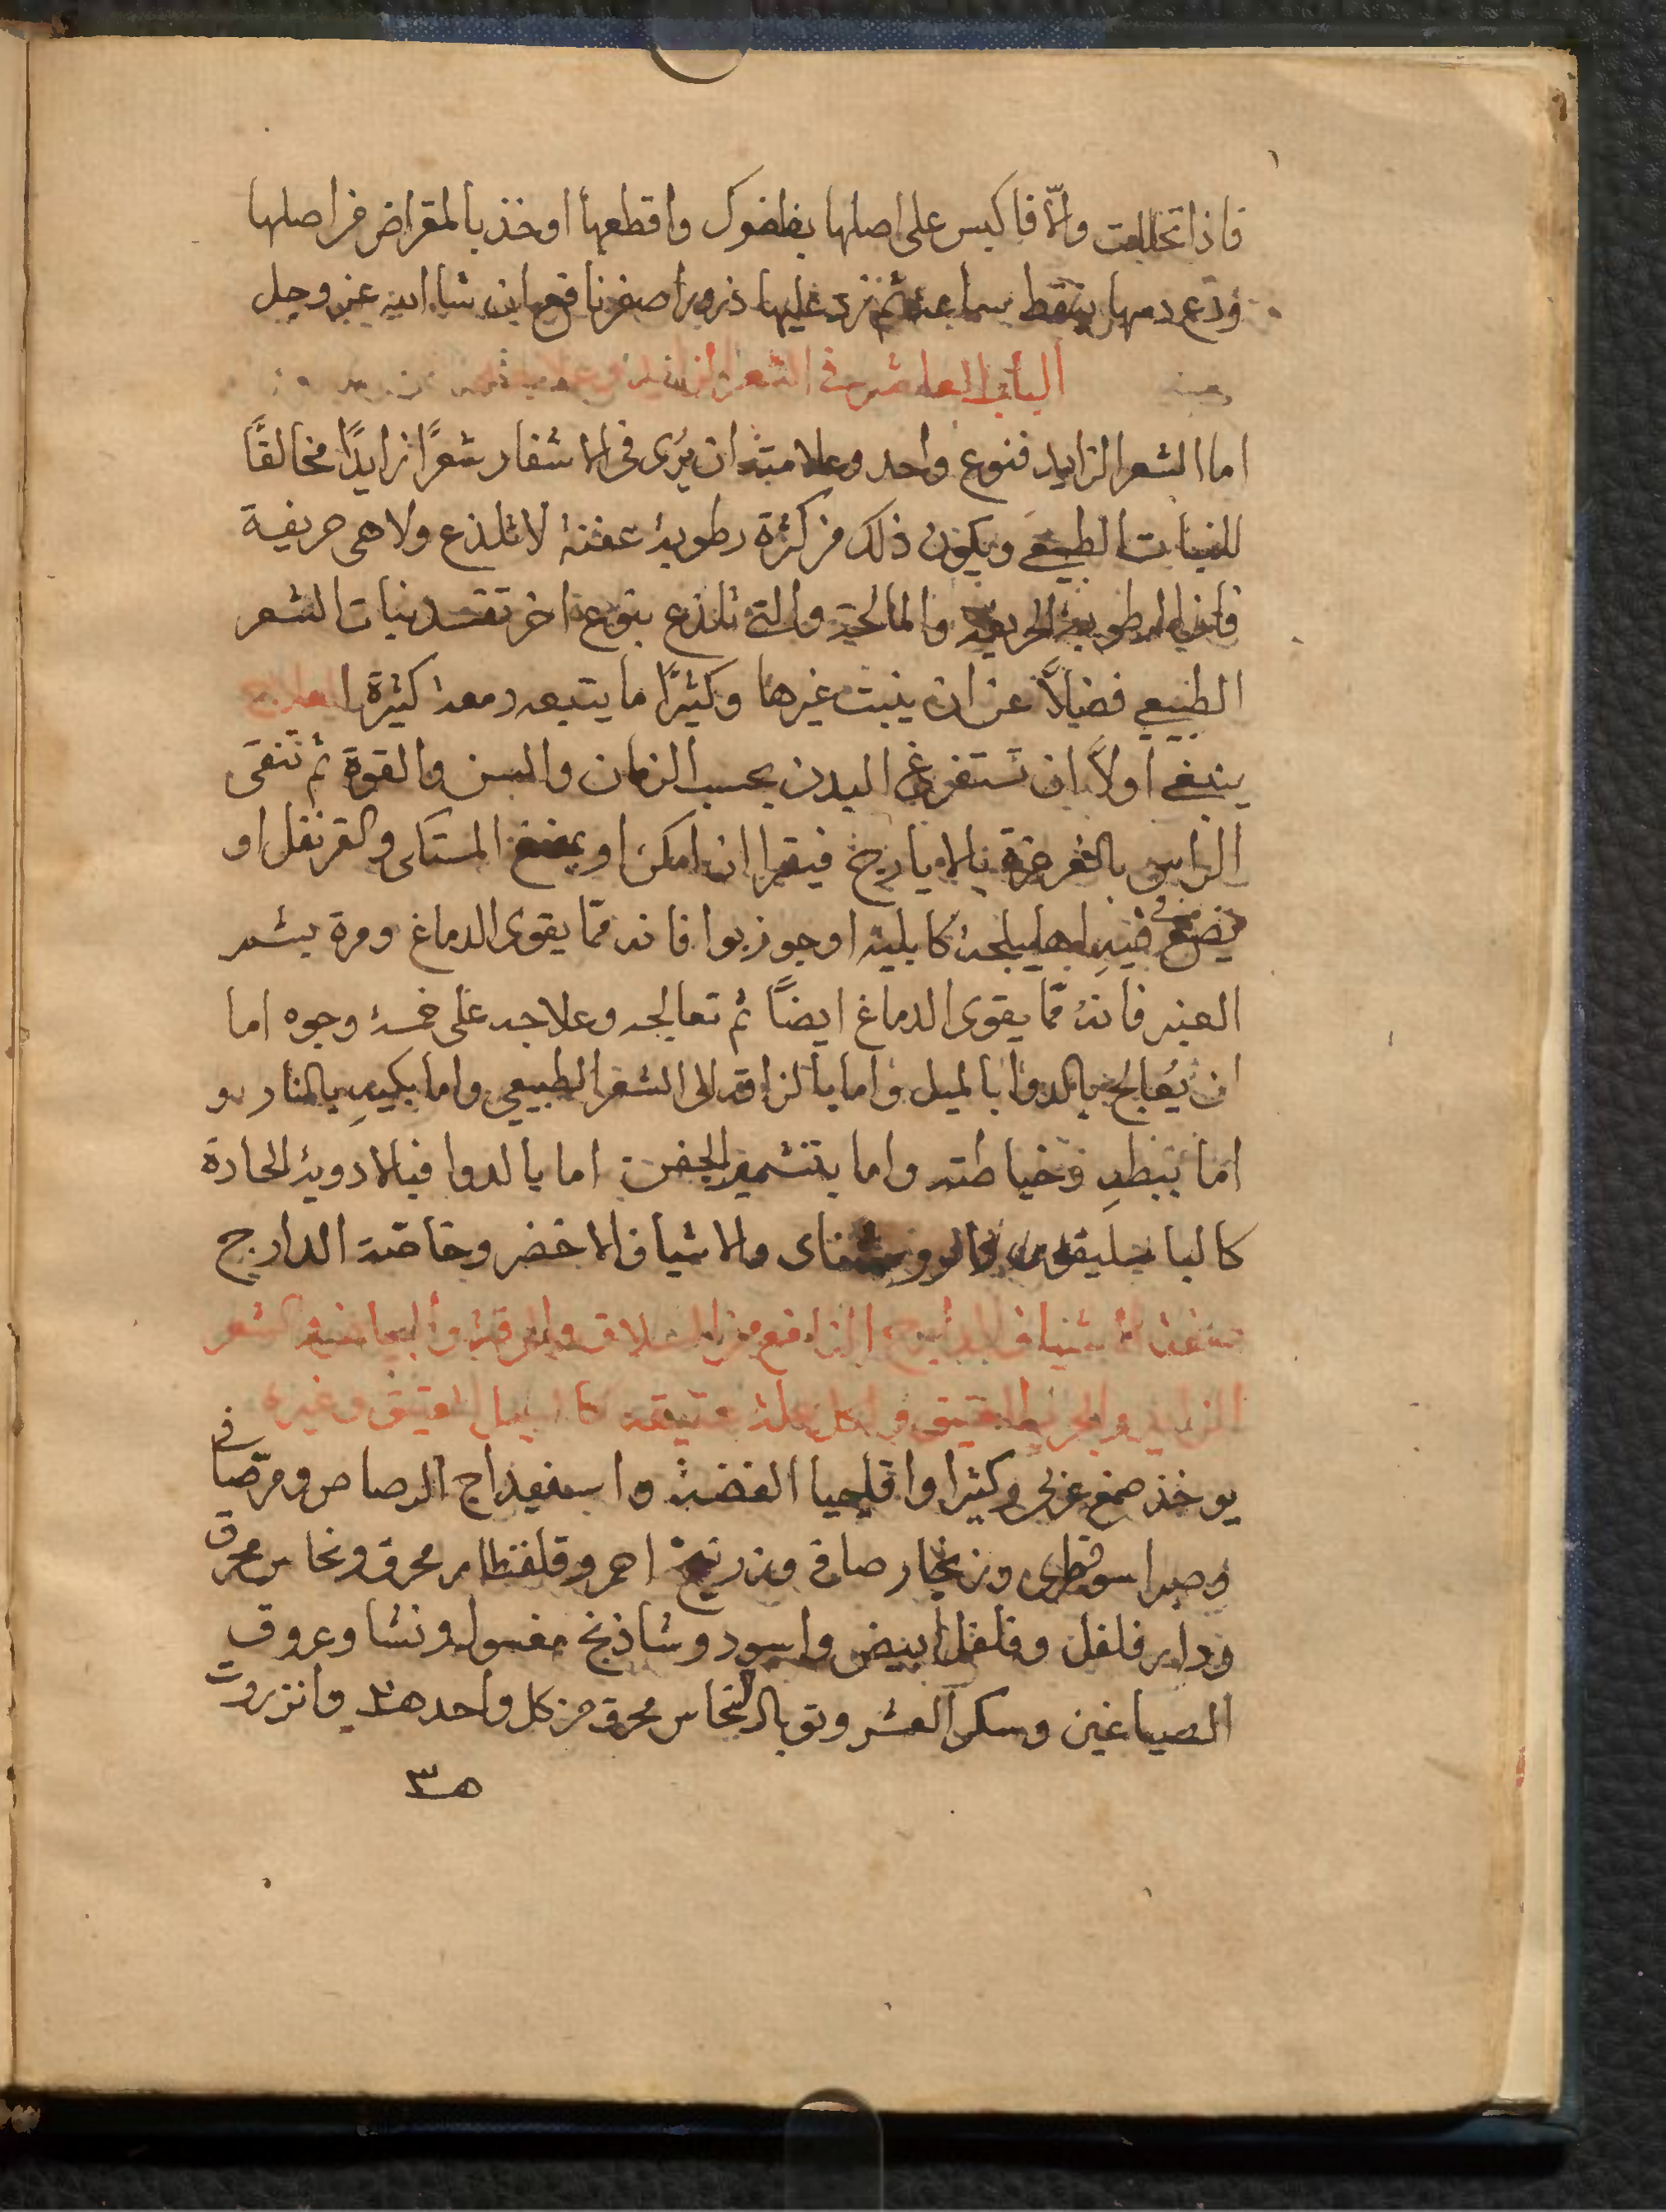 فاذا تحللت والّا فاكبس على اصلها بظفرك واقطعها او خذ بالمقراض من اصلها
ودع دمها ينقط ساعة ثم ذر عليها ذرورا اصفر نافع ان شا الله عز وجل
الباب العاشر في الشعر الزايد
اما الشعر الزايد فنوع واحد وعلامته ان يُرى في الاشفار شعرًا زايدًا مخالفًا
للنبات الطبيعي ويكون ذلك من كثرة رطوبة عفنة لا تلذع ولا هي حريفية
فان الرطوبة الحريفة والمالحة والتي تلذع بنوع اخر تفسد نبات الشعر
الطبيعي فضلاً عن ان ينبت غيرها وكثيرًا ما يتبعه دمعة كثيرة العلاج
ينبغي اولاً ان تستفرغ البدن بحسب الزمان والسن والقوة ثم تنقى
الراس بالغرغرة بالايارج فيقرا ان امكن او يمضغ المستكى والقرنفل او
يضع في فيهِ اهليلجة كابلية او جوزبوا فانه ممّا يقوى الدماغ ومرة يشم
العنبر فانهُ ممّا يقوى الدماغ ايضًا ثم تعالجه وعلاجه على خمسة وجوه اما
ان يُعالج بالدوا بالميل واما بالزاقه الى الشعر الطبيعي واما بكيهِ بالنار و
اما ببطهِ وخياطته واما بتشمير الجفن اما بالدوا فبالادوية الحادة
كالباسليقون والروشناى والاشياف الاخضر وخاصة الدارج
صفة اشياف النافع من السلاق والحرقة والبياض والشعر
الزايد والجرب العتيق ولكل علة عتيقة كالسبل العتيق وغيره
يوخذ صمغ عربى وكثيرا واقليميا الفضة واسفيداج الرصاص ومر صافى
وصبر اسوقطرى وزنجار صافى وزرنيخ احمر وقلقطار محرق ونحاس محرق
ودار فلفل وفلفل ابيض واسود وشاذنج مغسول ونشا وعروق
الصباغين وسكر العشر وتوبال النحاس محرق من كل واحد وانزروت